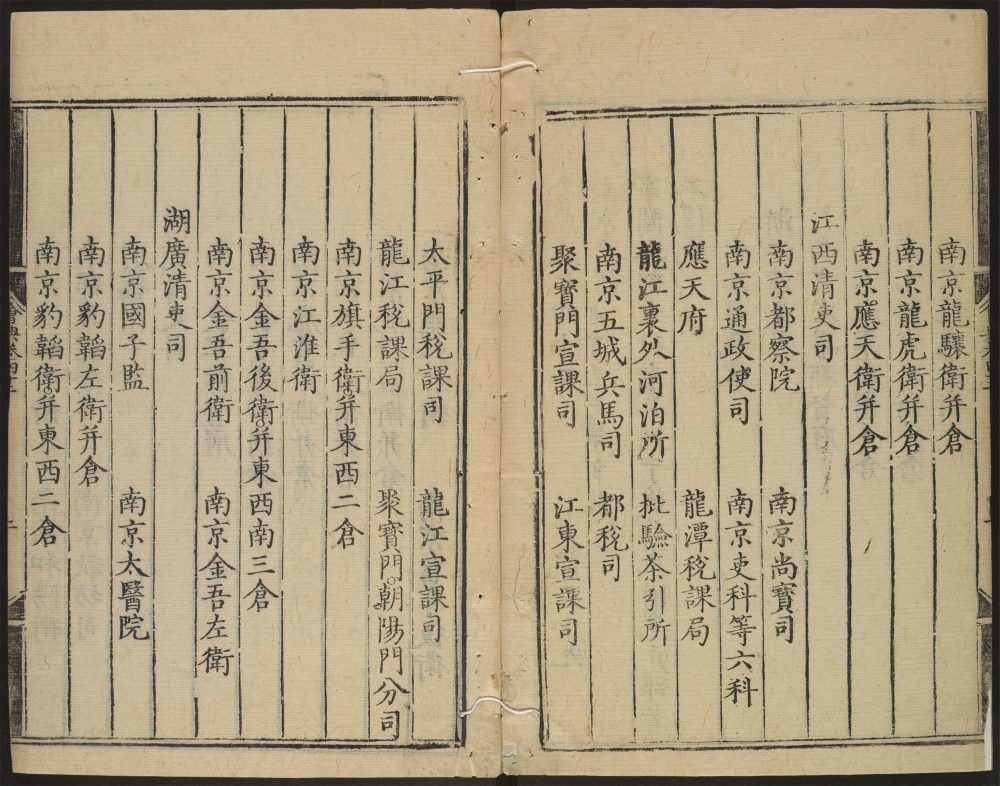 南京龍驤衛并倉
南京龍虎衛并倉
南京應天衛并倉
江西清吏司
南京都察院 南京尚寶司
南京通政使司 南京吏科等六科
應天府 龍潭稅課局
龍江裏外河泊所 批驗茶引所
南京五城兵馬司 都稅司
聚寶門宣課司 江東宣課司
太平門稅課司 龍江宣課司
龍江稅課局 聚寶門朝陽門分司
南京旗手衛并東西二倉
南京江淮衛
南京金吾後衛并東西南三倉
南京金吾前衛 南京金吾左衛
湖廣清吏司
南京國子監 南京太醫院
南京豹韜左衛并倉
南京豹韜衛并東西二倉
會典卷四十二